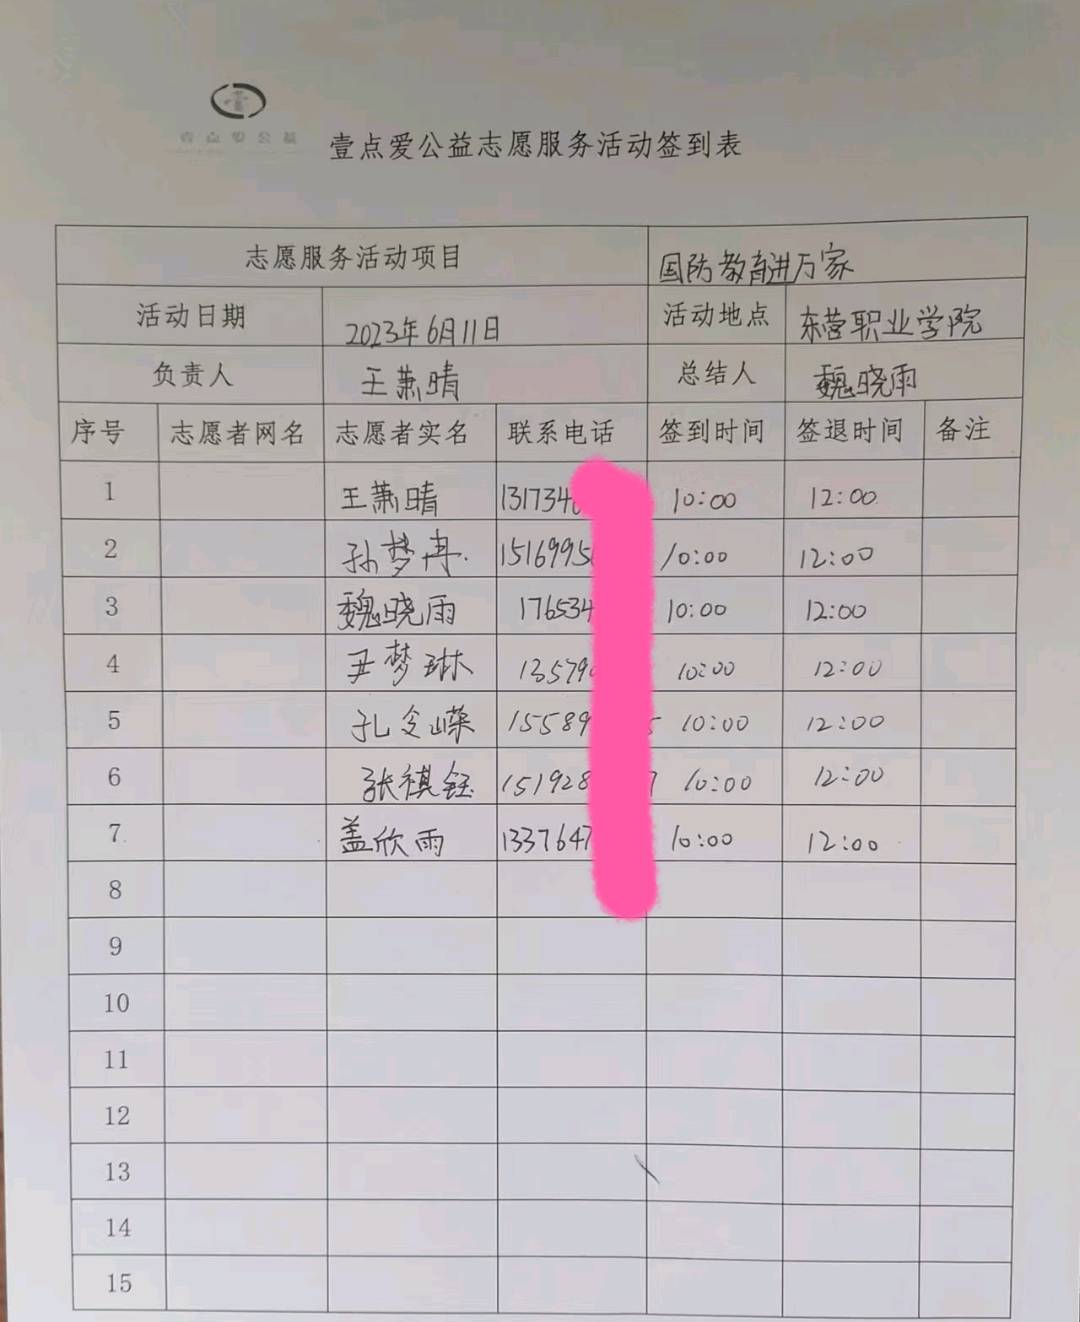 壹点爱公益
壹点爱公益志愿服务活动签到表
志愿服务活动项目 国防教育进万家
活动日期 2023年6月11日 活动地点 东营职业学院
负责人 王萧晴 总结人 魏晓雨
序号 志愿者网名 志愿者实名 联系电话 签到时间 签退时间 备注
1 王萧晴 131734 10:00 12:00
2 孙梦冉 1516995 10:00 12:00
3 魏晓雨 176534 10:00 12:00
4 尹梦琳 13579 10:00 12:00
5 孔令嵘 15589 5 10:00 12:00
6 张祺钰 151928 7 10:00 12:00
7 盖欣雨 1337647 10:00 12:00
8
9
10
11
12
13
14
15